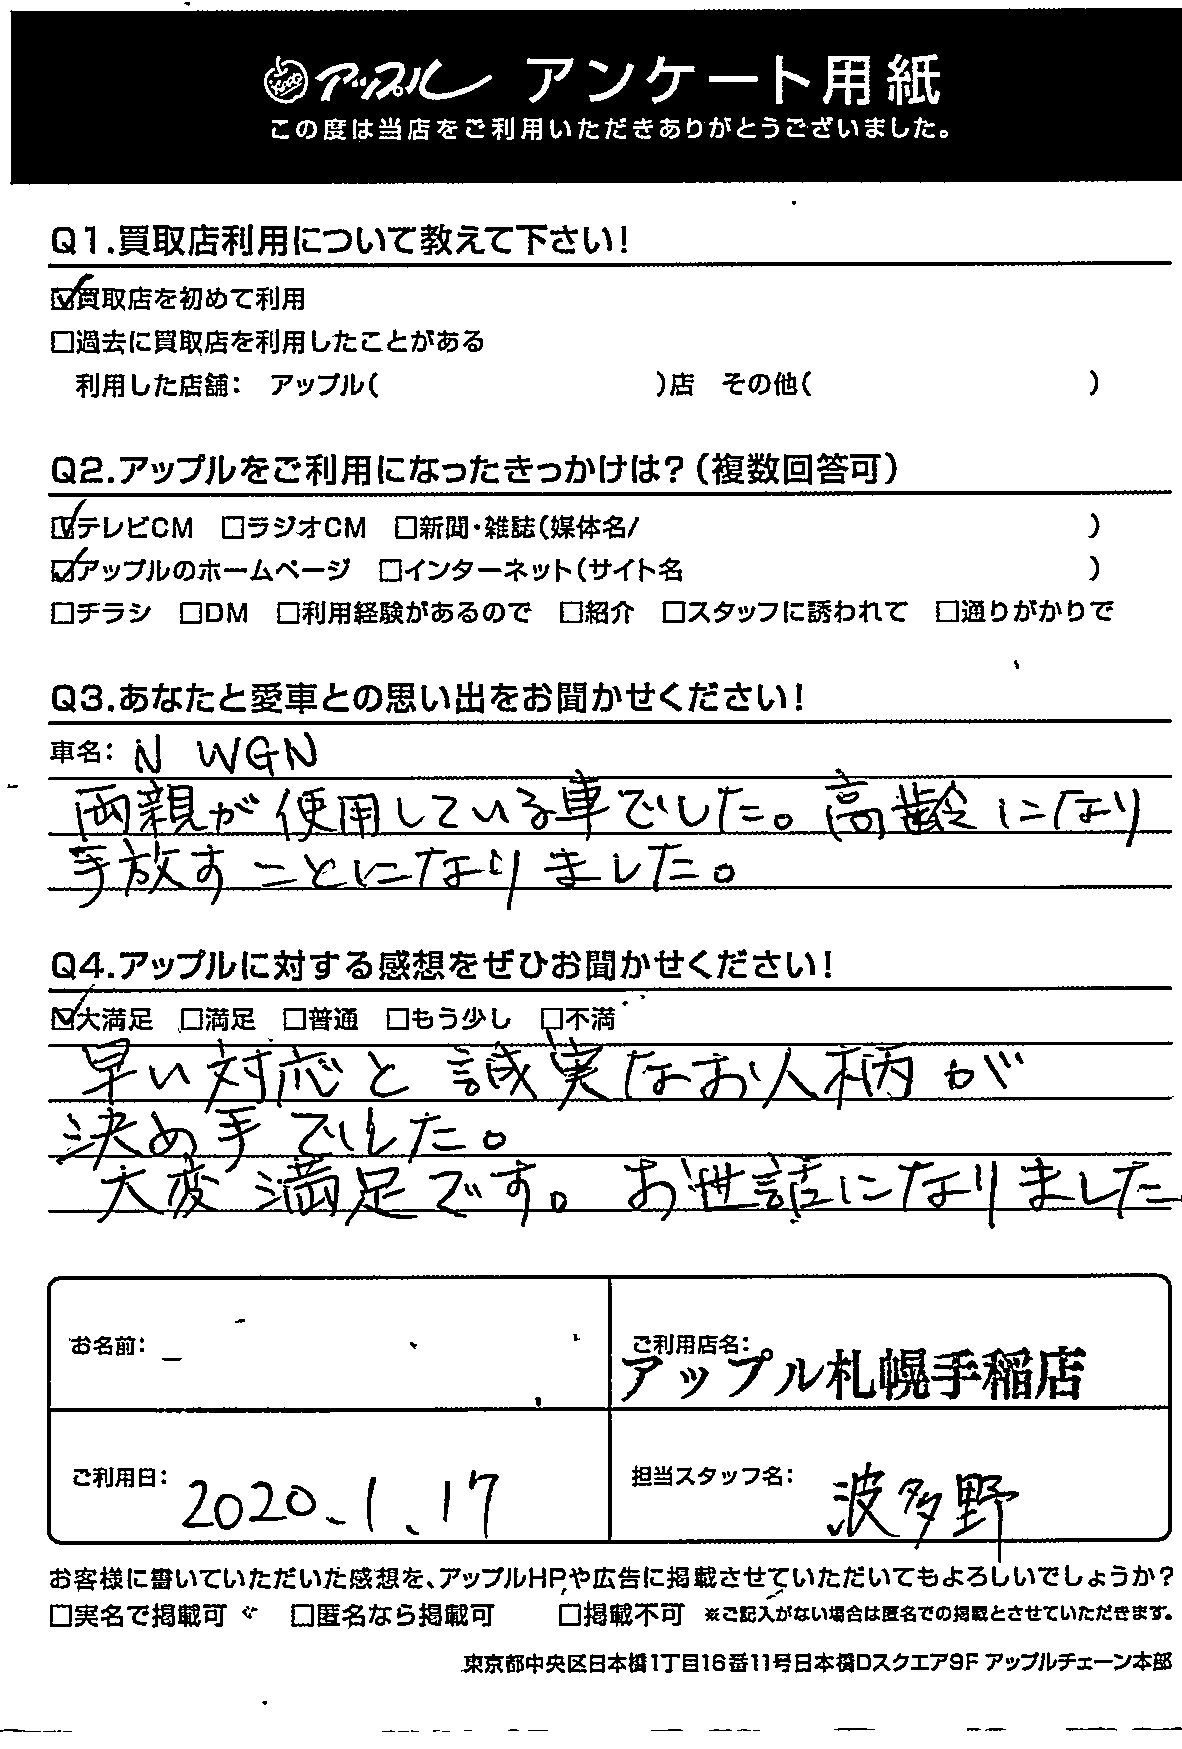 アップル アンケート用紙
この度は当店をご利用いただきありがとうございました。
Q1.買取店利用について教えて下さい！
☑買取店を初めて利用
□過去に買取店を利用したことがある
利用した店舗： アップル（ ）店 その他（ ）
Q2.アップルをご利用になったきっかけは？（複数回答可）
☑テレビCM □ラジオCM □新聞・雑誌（媒体名/ ）
☑アップルのホームページ □インターネット（サイト名 ）
□チラシ □DM □利用経験があるので □紹介 □スタッフに誘われて □通りがかりで
Q3.あなたと愛車との思い出をお聞かせください！
車名： N WGN
両親が使用している車でした。高齢になり
手放すことになりました。
Q4.アップルに対する感想をぜひお聞かせください！
☑大満足 □満足 □普通 □もう少し □不満
早い対応と誠実なお人柄が
決め手でした。
大変満足です。お世話になりました
お名前：
ご利用店名：
アップル札幌手稲店
ご利用日： 2020.1.17
担当スタッフ名： 波多野
お客様に書いていただいた感想を、アップルHPや広告に掲載させていただいてもよろしいでしょうか？
□実名で掲載可 □匿名なら掲載可 □掲載不可 ※ご記入がない場合は匿名での掲載とさせていただきます。
東京都中央区日本橋1丁目16番11号日本橋Dスクエア9F アップルチェーン本部